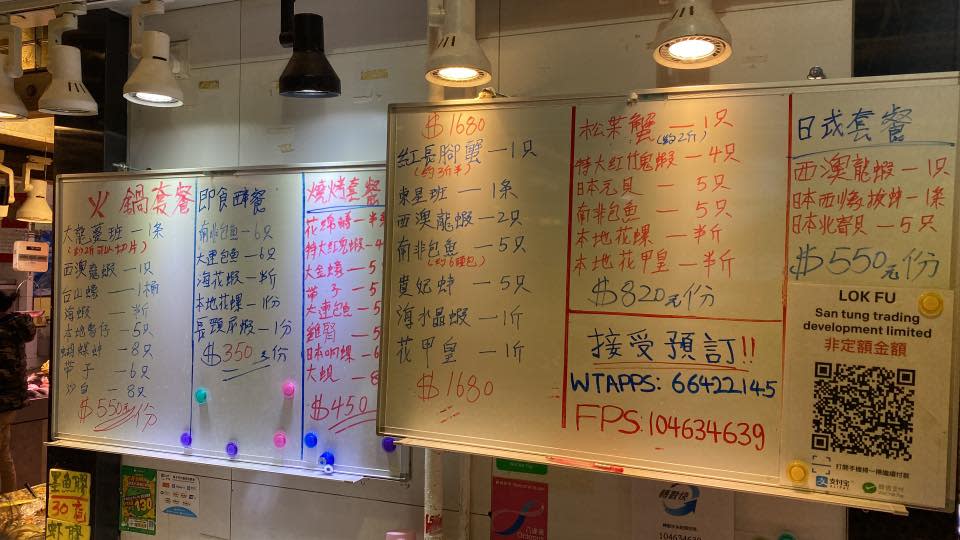 火鍋套餐
大龍躉班 — 1条
(約2斤可以切片)
西澳龍蝦 — 1只
台山蠔 — 1桶
海蝦 — 半斤
本地魷仔 — 5只
蝴蝶蚌 — 8只
带子 — 6只
沙白 — 8只
$550元/份
即食醉餐
南非包鱼 — 6只
大連包鱼 — 6只
海花蝦 — 半斤
本地花螺 — 1份
長頸尿蝦 — 1分
$350元份
燒烤套餐
花竹蝦 — 半
特大红鬼蝦 — 4
大金蠔 — 5
带子 — 5
大連包鱼 — 5
雞腎 — 5
日本啊螺 — 6
大蜆 — 8
$450
$1680
紅長腳蟹 — 1只
(約3斤半)
東星班 — 1条
西澳龍蝦 — 2只
南非包鱼 — 5只
貴妃蚌 — 5只
海水晶蝦 — 1斤
花甲皇 — 1斤
$1680
松葉蟹 — 1只
(約2斤)
特大红代鬼蝦 — 4只
日本元貝 — 5只
南非包鱼 — 5只
本地花螺 — 半斤
本地花甲皇 — 半斤
$820元份
接受預訂!!
WTAPPS: 66422145
FPS:104634639
日式套餐
西澳龍蝦 — 1只
日本北寄貝 — 5只
$550元/份
LOK FU
San tung trading
development limited
非定額金額
打開手機掃一掃繼續付款
支付宝
30
虾膠
轉數快
104634639